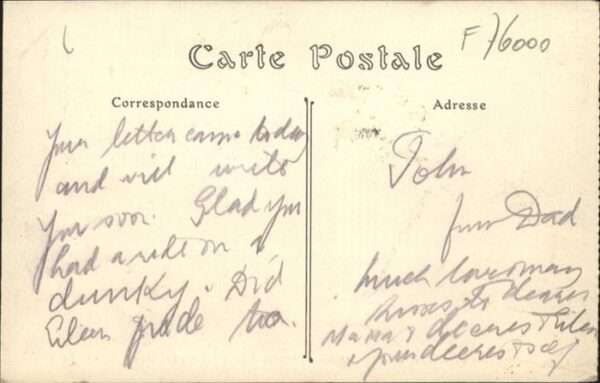 Carte Postale
F 76000
Correspondance
Your letter came today
and will write
you soon. Glad you
had a ride on a
dunky. Did
Eileen ride too.
Adresse
John
from Dad
much love & many
kisses to dearest
Mama & dearest Eileen
& your dearest self